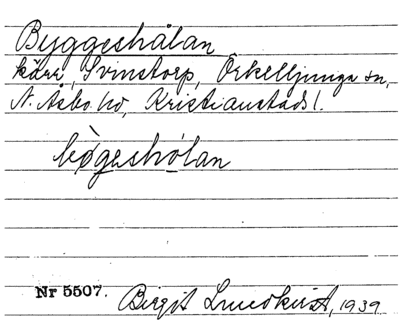 Byggeshålan
kärr, Svinstorp, Örkelljunga sn,
N. Åsbo hd, Kristianstads l.
bỳgeshólan
Nr 5507. Birgit Lundkvist, 1939